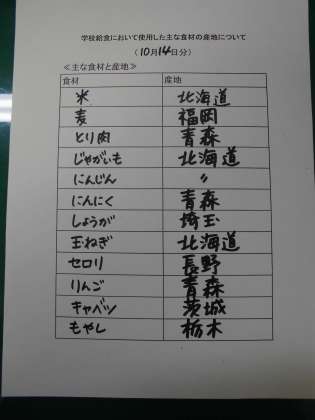 学校給食において使用した主な食材の産地について
（10月14日分）
≪主な食材と産地≫
食材 産地
米 北海道
麦 福岡
とり肉 青森
じゃがいも 北海道
にんじん 〃
にんにく 青森
しょうが 埼玉
玉ねぎ 北海道
セロリ 長野
りんご 青森
キャベツ 茨城
もやし 栃木